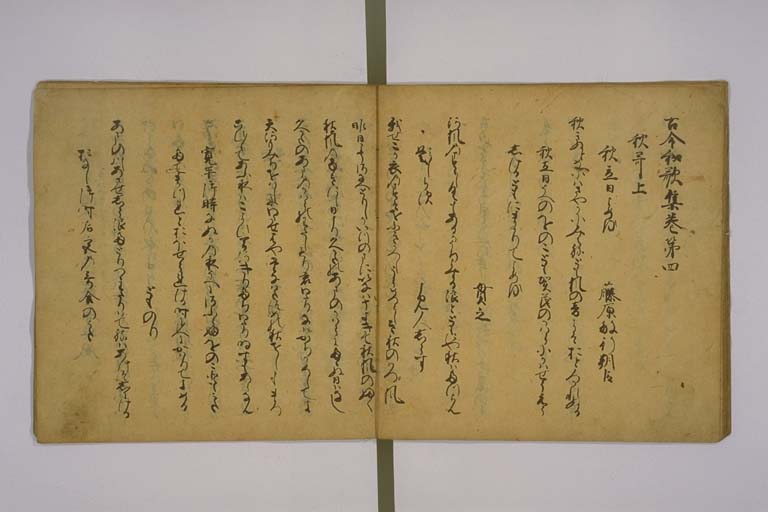 古今和歌集巻第四
秋哥上
秋立日よめる　藤原敏行朝臣
秋きぬとめにはさやかにみえねとも風の音にそおとろかれぬる
秋立日うへのをのことも賀茂のかはらにかはせうえう
しけるともにまかりてよめる
貫之
河風のすゝしくもあるかうちよする浪とゝもにや秋は立らん
題しらす　よみ人しらす
我せこか衣のすそを吹返しうらめつらしき秋のはつ風
昨日こそさなへとりしかいつのまにいなはそよきて秋風のふく
秋風の吹にし日より久かたのあまのかはらにたゝぬ日はなし
久かたのあまのかはらのわたしもり君わたりなはかちかくしてよ
天河もみちをはしにわたせはや七夕つめの秋をしもまつ
こひ／＼てあふ夜はこよひあまの河きり立わたりあけすもあらなん
寛平御時なぬかの夜うへにさふらふをのこともうた
たてまつれとおほせられける時人にかはりてよめる
とものり
あまの河あさせしら浪たとりつゝわたりはてねはあけそしにける
おなし御時后宮の哥合のうた